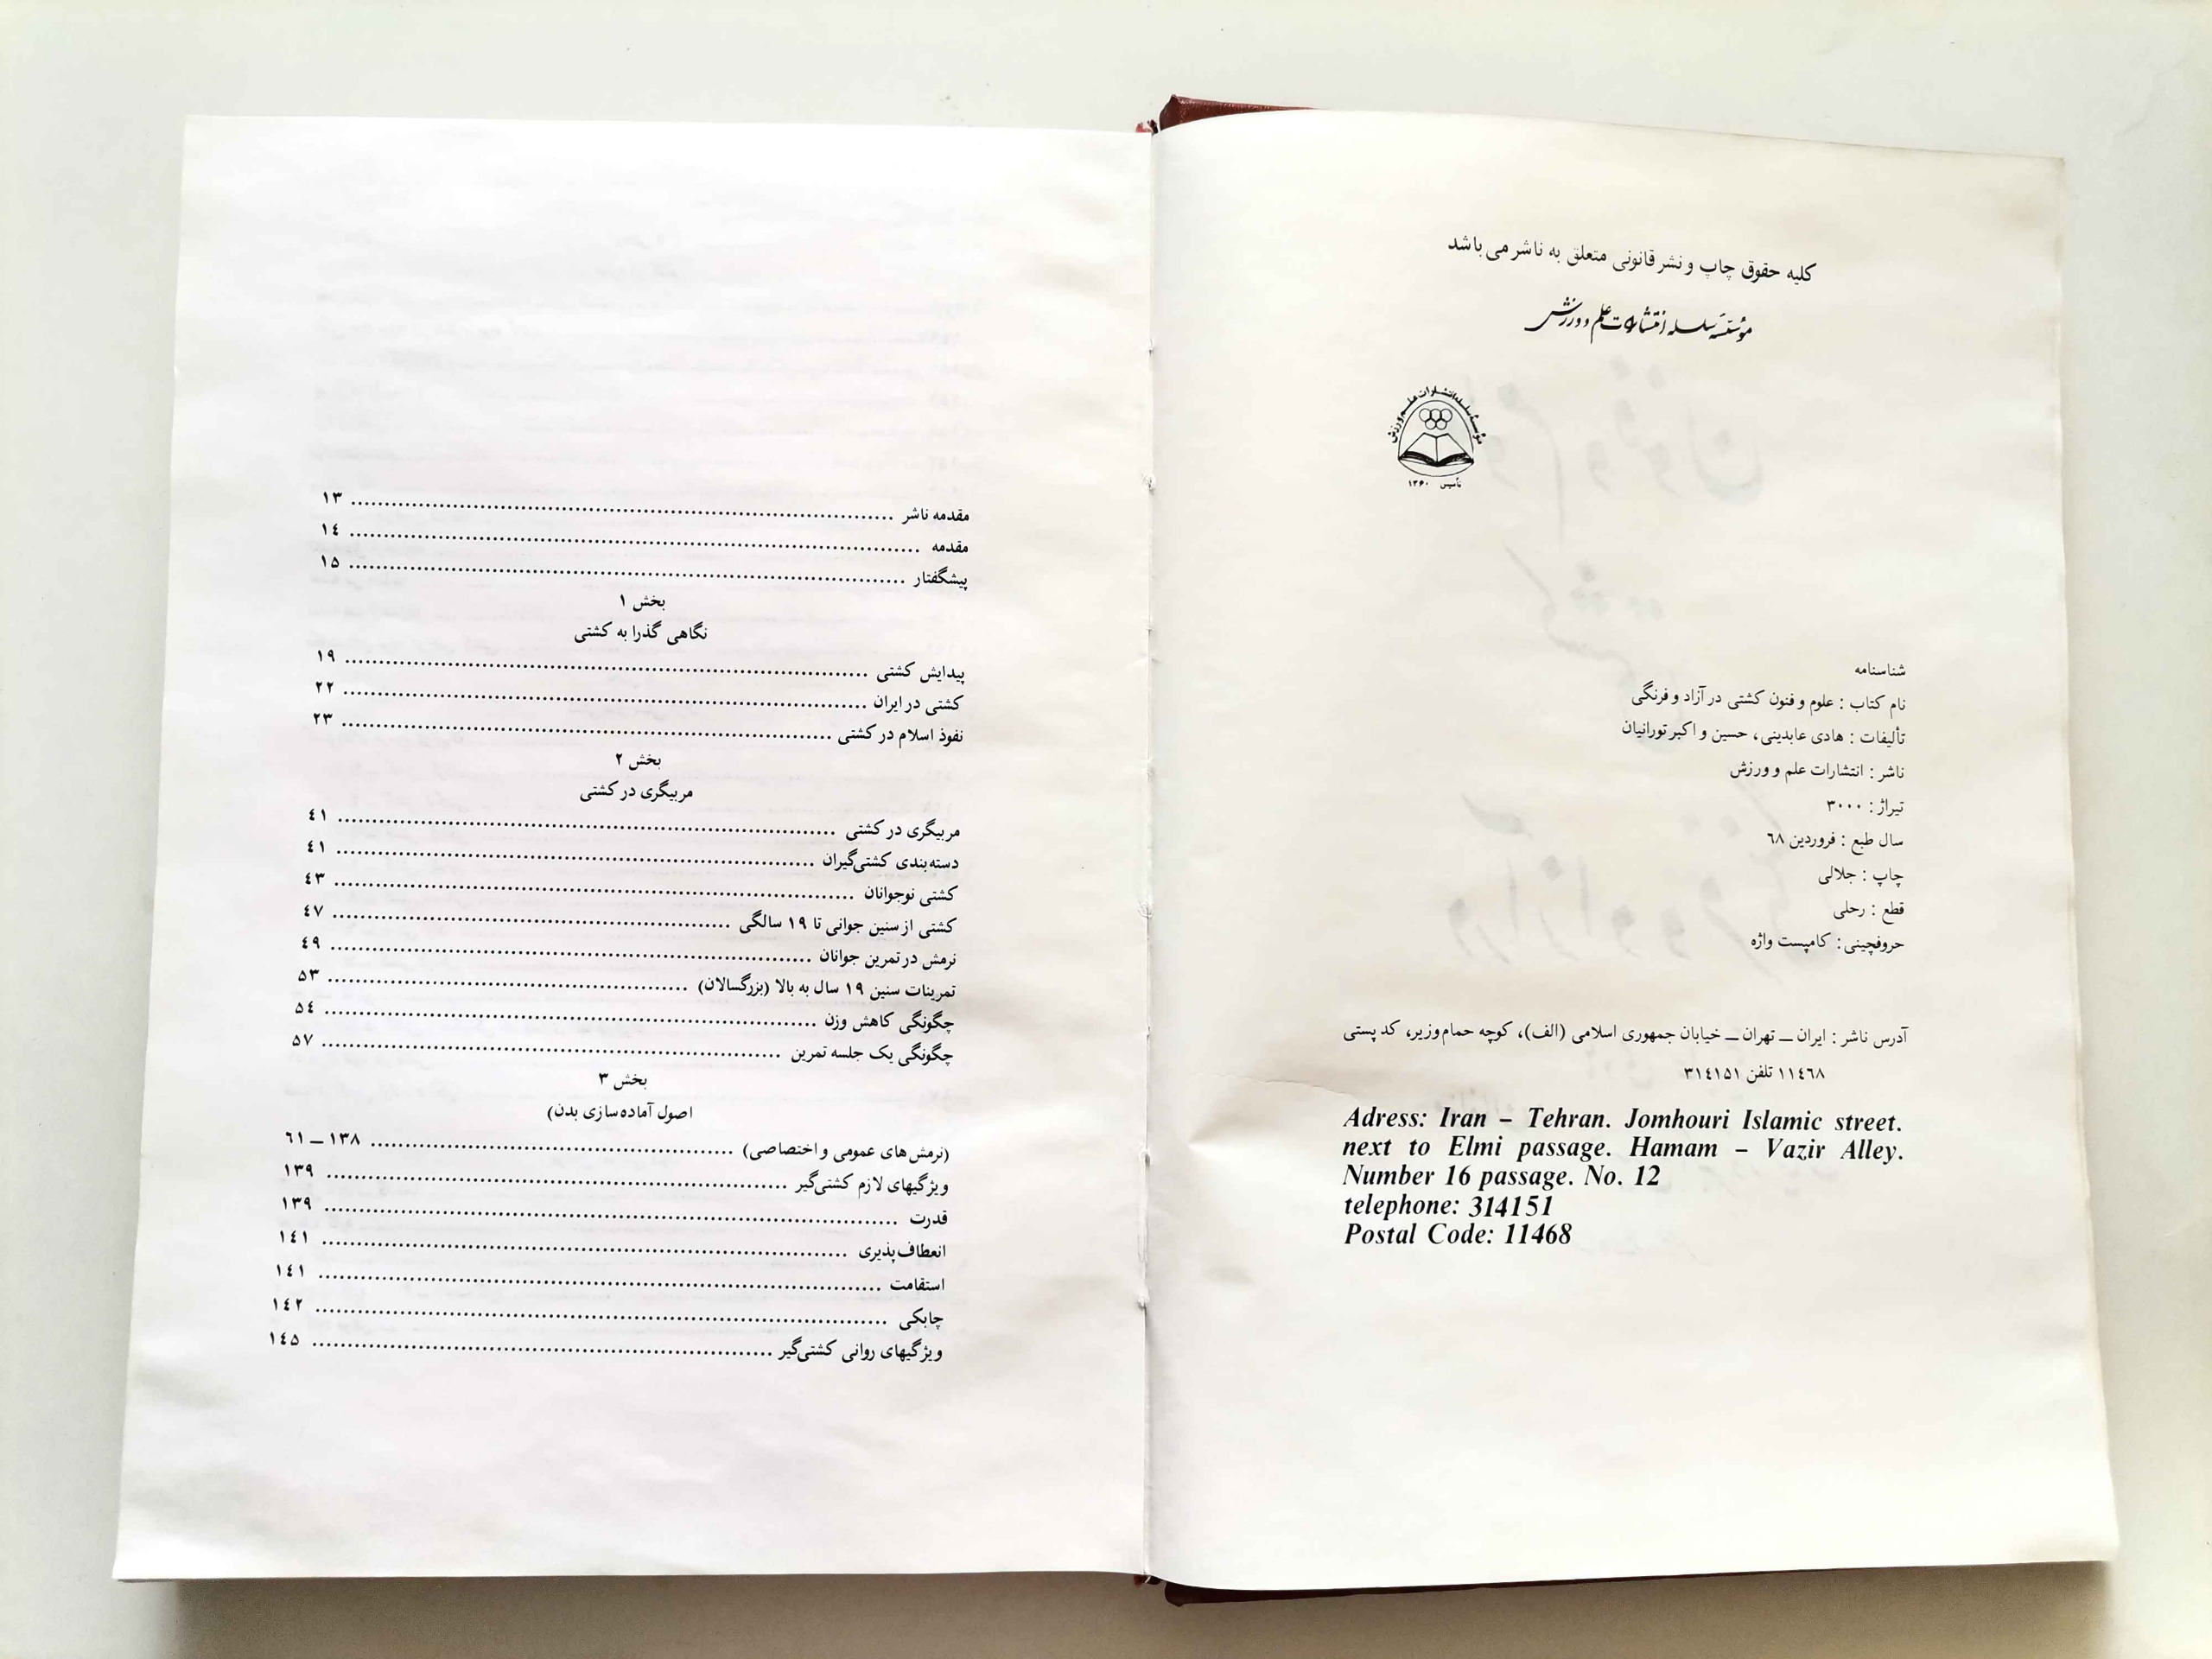 کلیه حقوق چاپ و نشر قانونی متعلق به ناشر می باشد
مؤسسه سلسله انتشارات علم و ورزش
مؤسسه سلسله انتشارات علم و ورزش
تأسیس ۱۳۶۰
شناسنامه
نام کتاب : علوم و فنون کشتی در آزاد و فرنگی
تألیفات : هادی عابدینی، حسین و اکبر تورانیان
ناشر : انتشارات علم و ورزش
تیراژ : ۳۰۰۰
سال طبع : فروردین ٦٨
چاپ : جلالی
قطع : رحلی
حروفچینی : کامپست واژه
آدرس ناشر : ایران ــ تهران ــ خیابان جمهوری اسلامی (الف)، کوچه حمام وزیر، کد پستی
١١٤٦٨ تلفن ٣١٤١٥١
Adress: Iran – Tehran. Jomhouri Islamic street.
next to Elmi passage. Hamam – Vazir Alley.
Number 16 passage. No. 12
telephone: 314151
Postal Code: 11468
مقدمه ناشر ........ ١٣
مقدمه ........ ١٤
پیشگفتار ........ ١٥
بخش ١
نگاهی گذرا به کشتی
پیدایش کشتی ........ ١٩
کشتی در ایران ........ ٢٢
نفوذ اسلام در کشتی ........ ٢٣
بخش ٢
مربیگری در کشتی
مربیگری در کشتی ........ ٤١
دسته‌بندی کشتی‌گیران ........ ٤١
کشتی نوجوانان ........ ٤٣
کشتی از سنین جوانی تا ١٩ سالگی ........ ٤٧
نرمش در تمرین جوانان ........ ٤٩
تمرینات سنین ١٩ سال به بالا (بزرگسالان) ........ ٥٣
چگونگی کاهش وزن ........ ٥٤
چگونگی یک جلسه تمرین ........ ٥٧
بخش ٣
اصول آماده‌سازی بدن)
(نرمش های عمومی و اختصاصی) ........ ١٣٨ ــ ٦١
ویژگیهای لازم کشتی‌گیر ........ ١٣٩
قدرت ........ ١٣٩
انعطاف‌پذیری ........ ١٤١
استقامت ........ ١٤١
چابکی ........ ١٤٢
ویژگیهای روانی کشتی‌گیر ........ ١٤٥